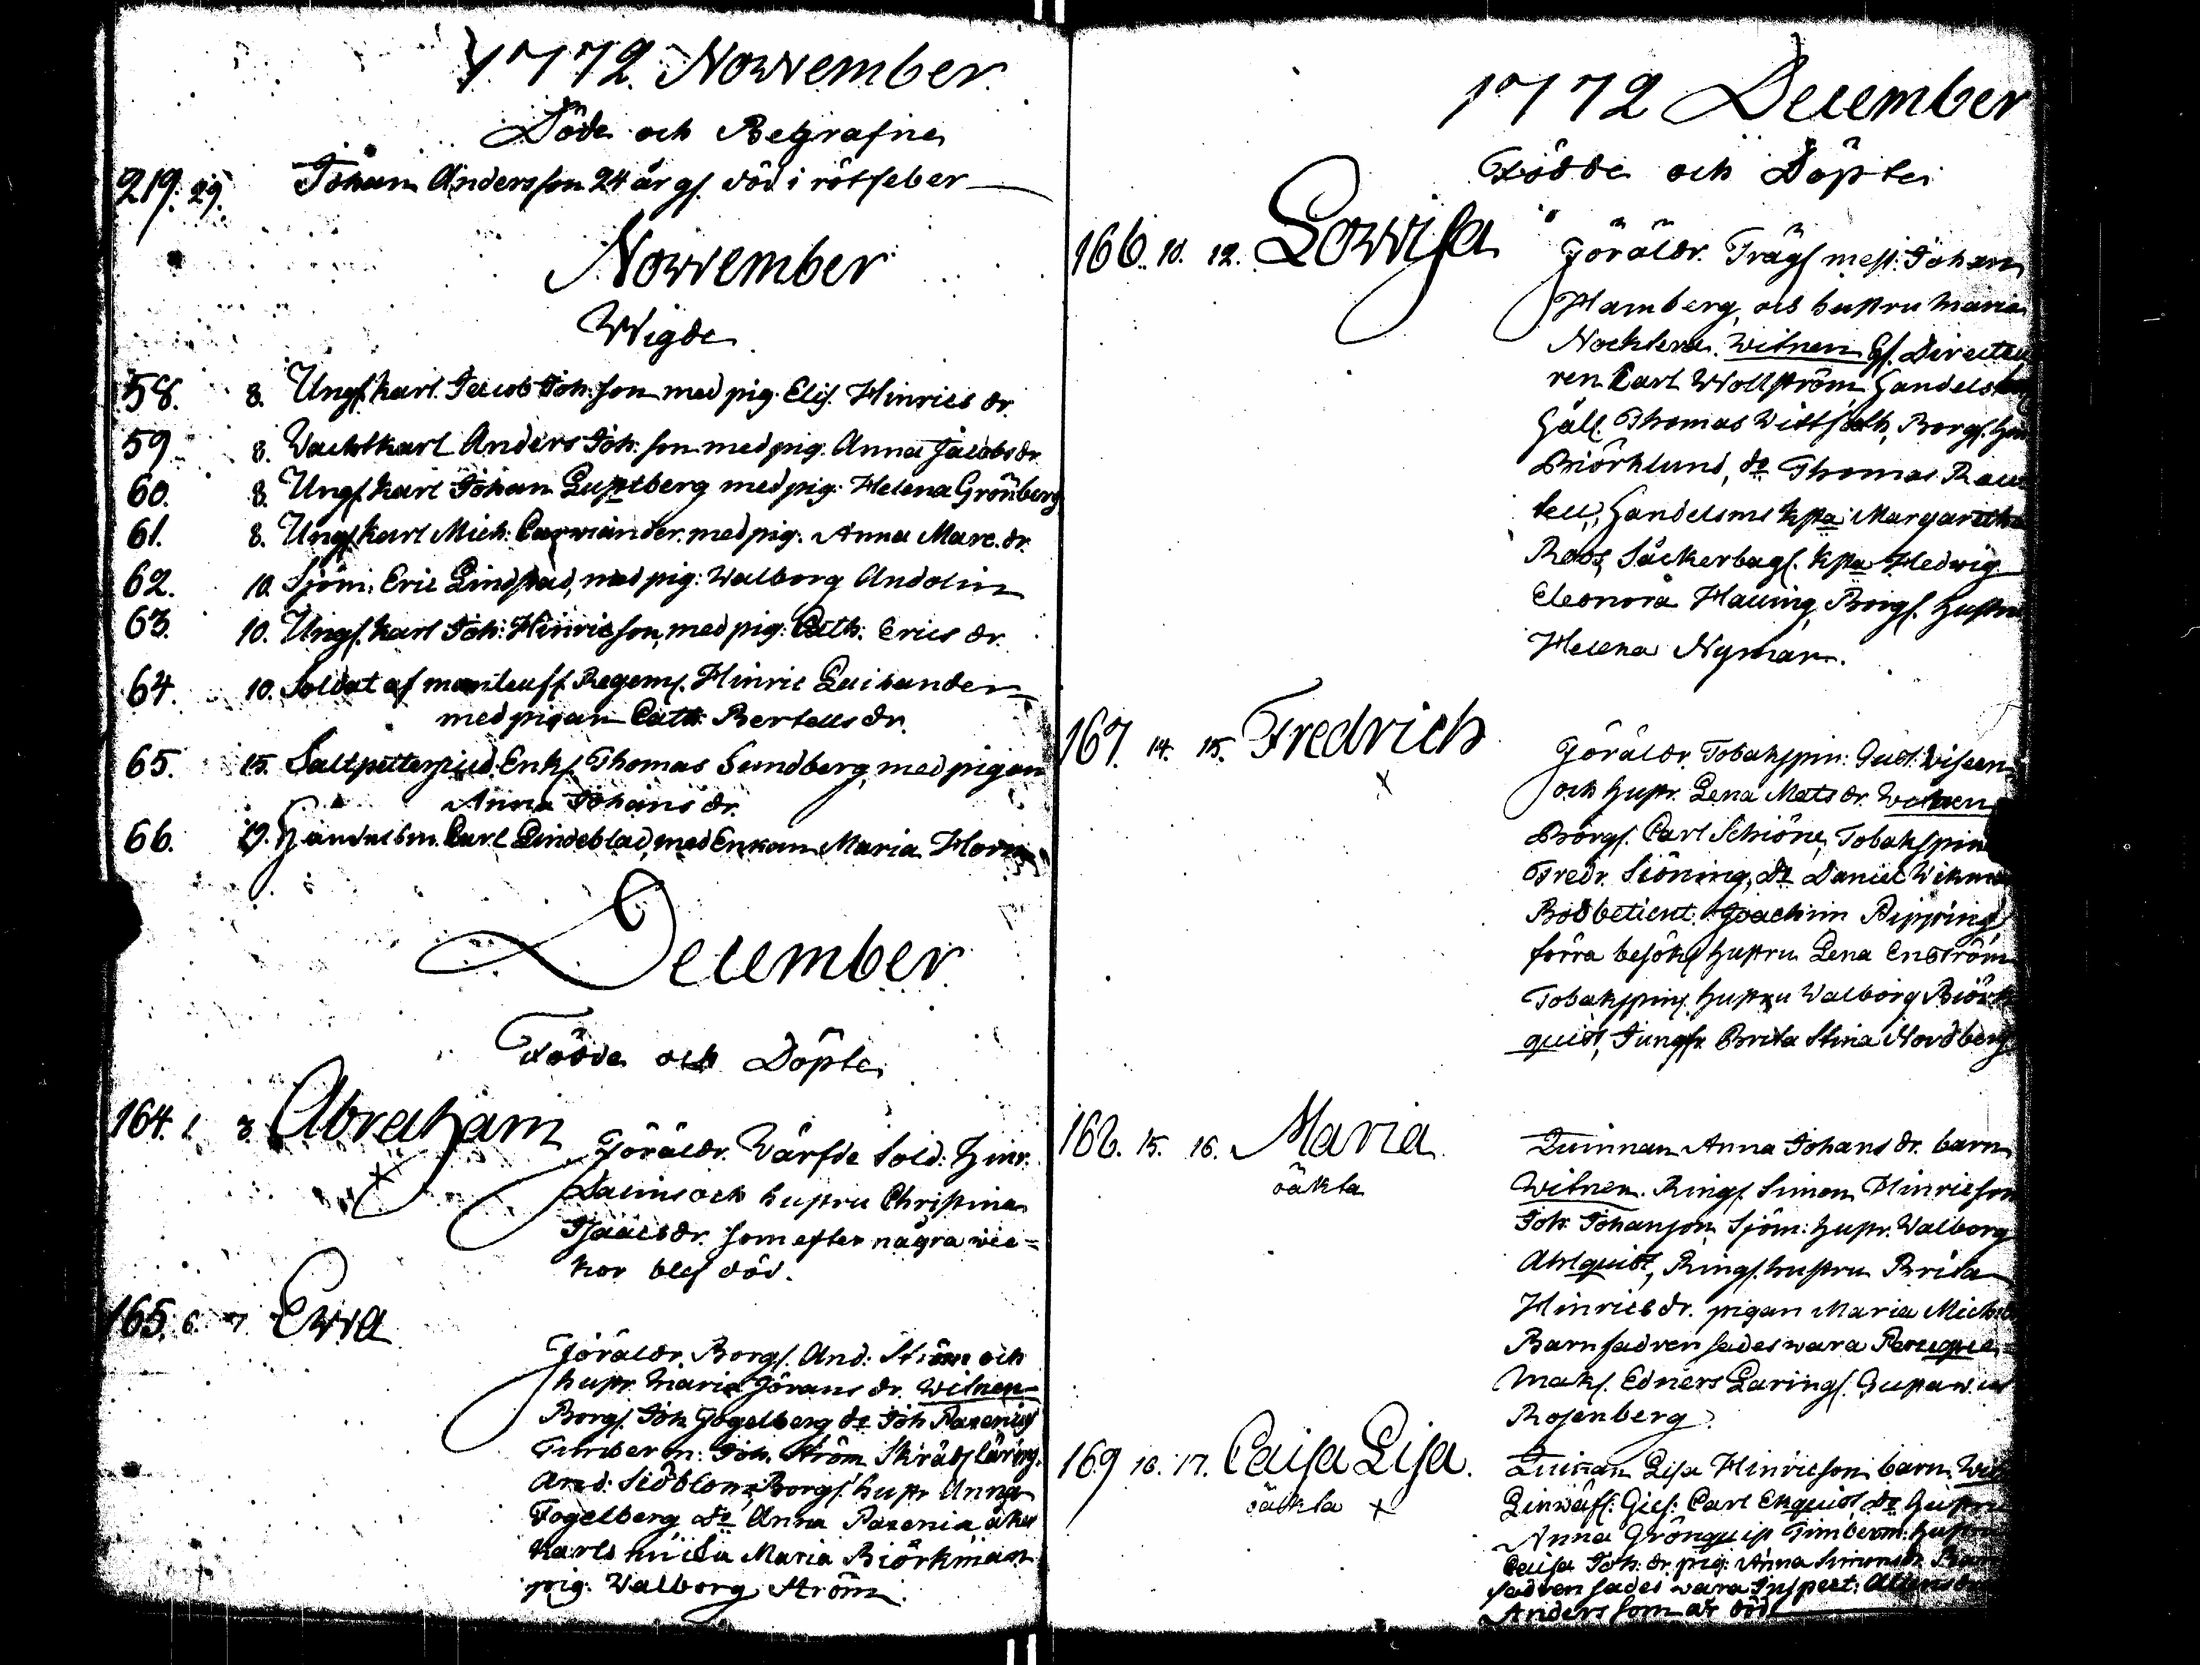 1772. November
Döde och Begrafne
219. 29. Johan Andersson 24 år gl. död i rötfeber
November
Wigde
58. 8. Ungs. karl Jacob Joh. son med pig. Elis. Hinrics dr.
59 8. Wachtkarl Anders Joh. son med pig. Anna Jacobs dr.
60. 8. Ungs. karl Johan Luptberg med pig. Helena Grönberg
61. 8. Ungs. karl Mich. med pig. Anna Marc. dr.
62. 10. Sjöm. Eric Lindstad, med pig: Walborg Andolin
63. 10. Ungs. karl Joh: Hinricson, med pig: Cath: Erics dr.
64. 10. Soldat af Regem. Hinric
med pigan Cath. Bertells dr.
65. 15. Enkl. Thomas Sundberg med pigan
Anna Johans dr.
66. Handelsm. Carl Lindeblad, med Enkan Maria Horn
December
Födde och Döpte
164. 1. 3. Abraham Föräldr. Wärfde Sold. Hinr.
och hustru Christina
Isaacs dr. som efter några wec=
kor blef död.
165. 6. 7. Ewa
Föräldr. Borgs. And: Ström och
hustr. Maria Görans dr. Witnen
Borgs. Joh Fogelberg do Joh Paxenius
Timberm: Joh. Ström Skräds läring.
And: Siöblom, Borgs. hustr Anna
Fogelberg do Anna Paxenia åker
karls Maria Biörkman
pig: Walborg Ström.
1772 December
Födde och Döpte
166. 10. 12. Lowisa Föräldr. Trägs mest: Johan
Hamberg, och hustru Maria
Witnen Hr. Directeu
ren Carl Wollström, Handels
Gäll. Thomas Borgs. Hin
Biörklund, do Thomas
tell, Handelsms kpa Margaretha
Roos, Såckerbags. kpa Hedwig
Eleonora Hauing, Borgs. hustru
Helena Nyman.
167. 14. 15. Fredrich
Föräldr. Tobakspin: Gust.
och hustr. Lena Mats dr. Witnen
Borgs. Carl Schiöne, Tobakspin
Fredr. Siöning, do Daniel
Bodbetient. Joachim Pipping
förra besök. hustru Lena Enström
Tobakspin. hustru Walborg Biörk
quist, Jungfr. Brita Stina Nordberg
168. 15. 16. Maria Quinnan Anna Johans dr. barn
oäkta Witnen. Rings. Simon Hinricson
Joh: Johanson, Sjöm: hustr. Walborg
Ahlquist, Rings. hustru Brita
Hinrics dr. pigan Maria Michels
Barnfadren sades wara Peruque=
mak. Edners Läring.
Rosenberg.
169 16. 17. Caisa Lisa. Quinnan Lisa Hinricson barn. Wit
oäkta Ges: Carl Ekquist, do hustru
Anna Grönquist Timberm. hustru
Caisa Joh. dr. pig: Anna Simons dr. Barn
fadren sades wara Inspect:
Anders som är död